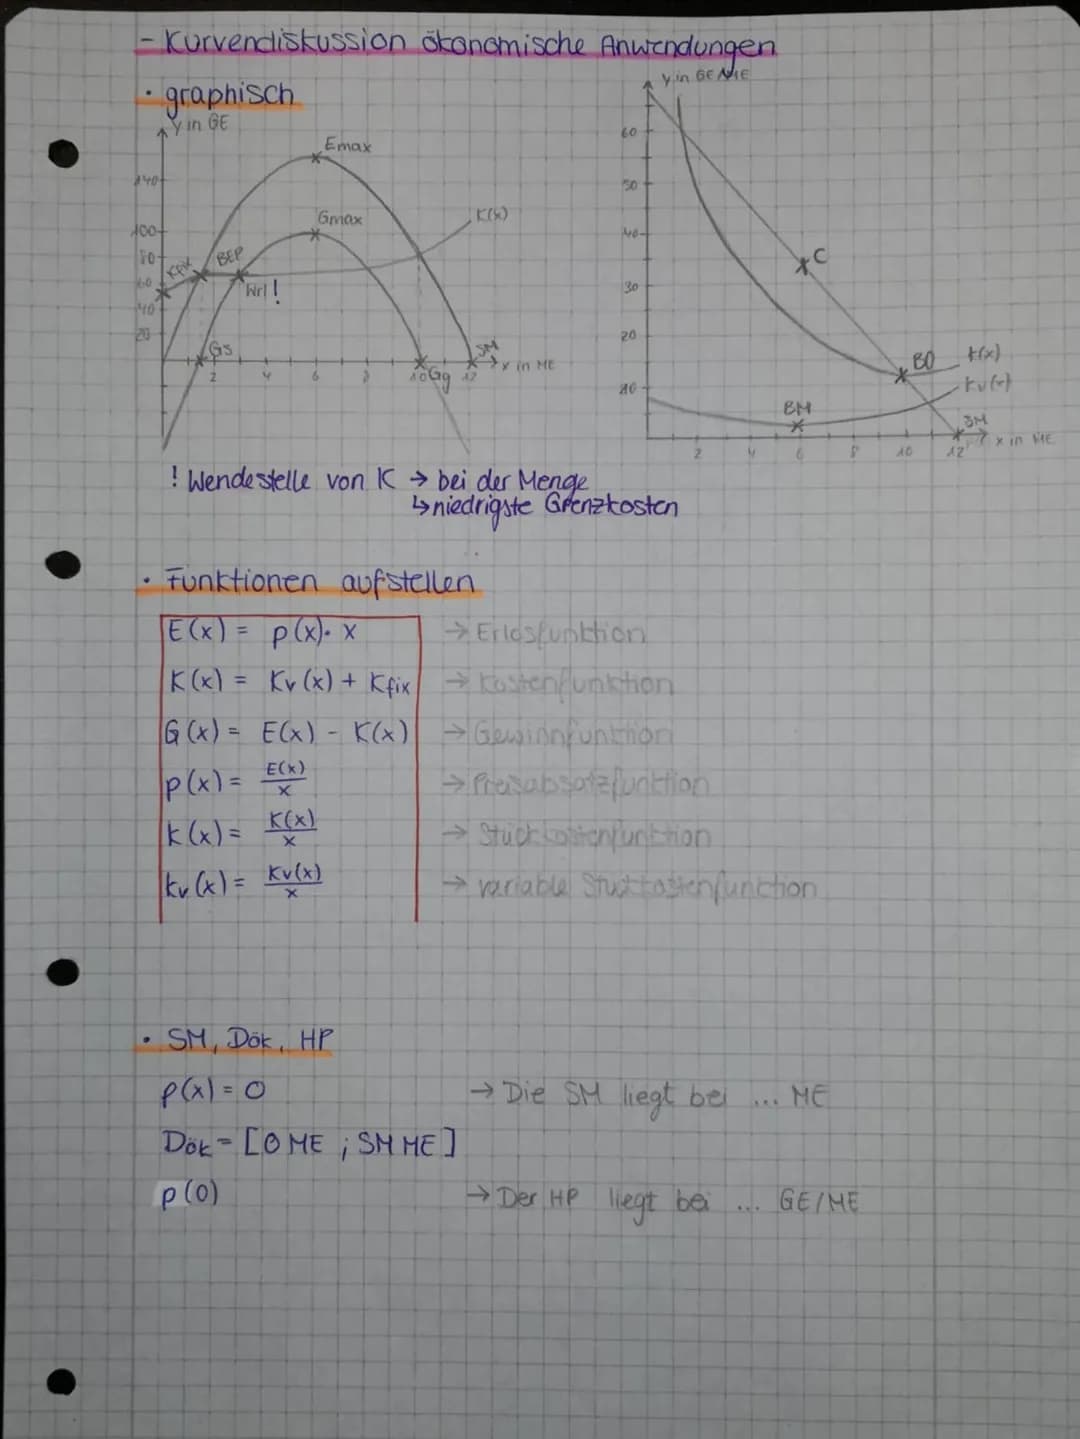 - Kurvendiskussion ökonomische Anwendungen
• graphisch
y in GE
Emax
140
Gmax
K(x)
100
80
Kfix
BEP
60
Wrl!
40
20
GS
SM
x in ME
2
4
6
8
10
Gg
12
y in GE/ME
60
50
40
C
30
20
BO
k(x)
10
kv(x)
BM
SM
x in ME
2
4
6
8
10
12
! Wendestelle von K → bei der Menge
↳ niedrigste Grenzkosten
• Funktionen aufstellen
E(x) = p(x)· x → Erlösfunktion
K(x) = Kv(x) + Kfix → Kostenfunktion
G(x) = E(x) - K(x) → Gewinnfunktion
p(x) = E(x)/x → Preisabsatzfunktion
k(x) = K(x)/x → Stückkostenfunktion
kv(x) = Kv(x)/x → variable Stückkostenfunktion
• SM, Dök, HP
p(x) = 0 → Die SM liegt bei ... ME
Dök = [0 ME ; SM ME]
p(0) → Der HP liegt bei ... GE/ME